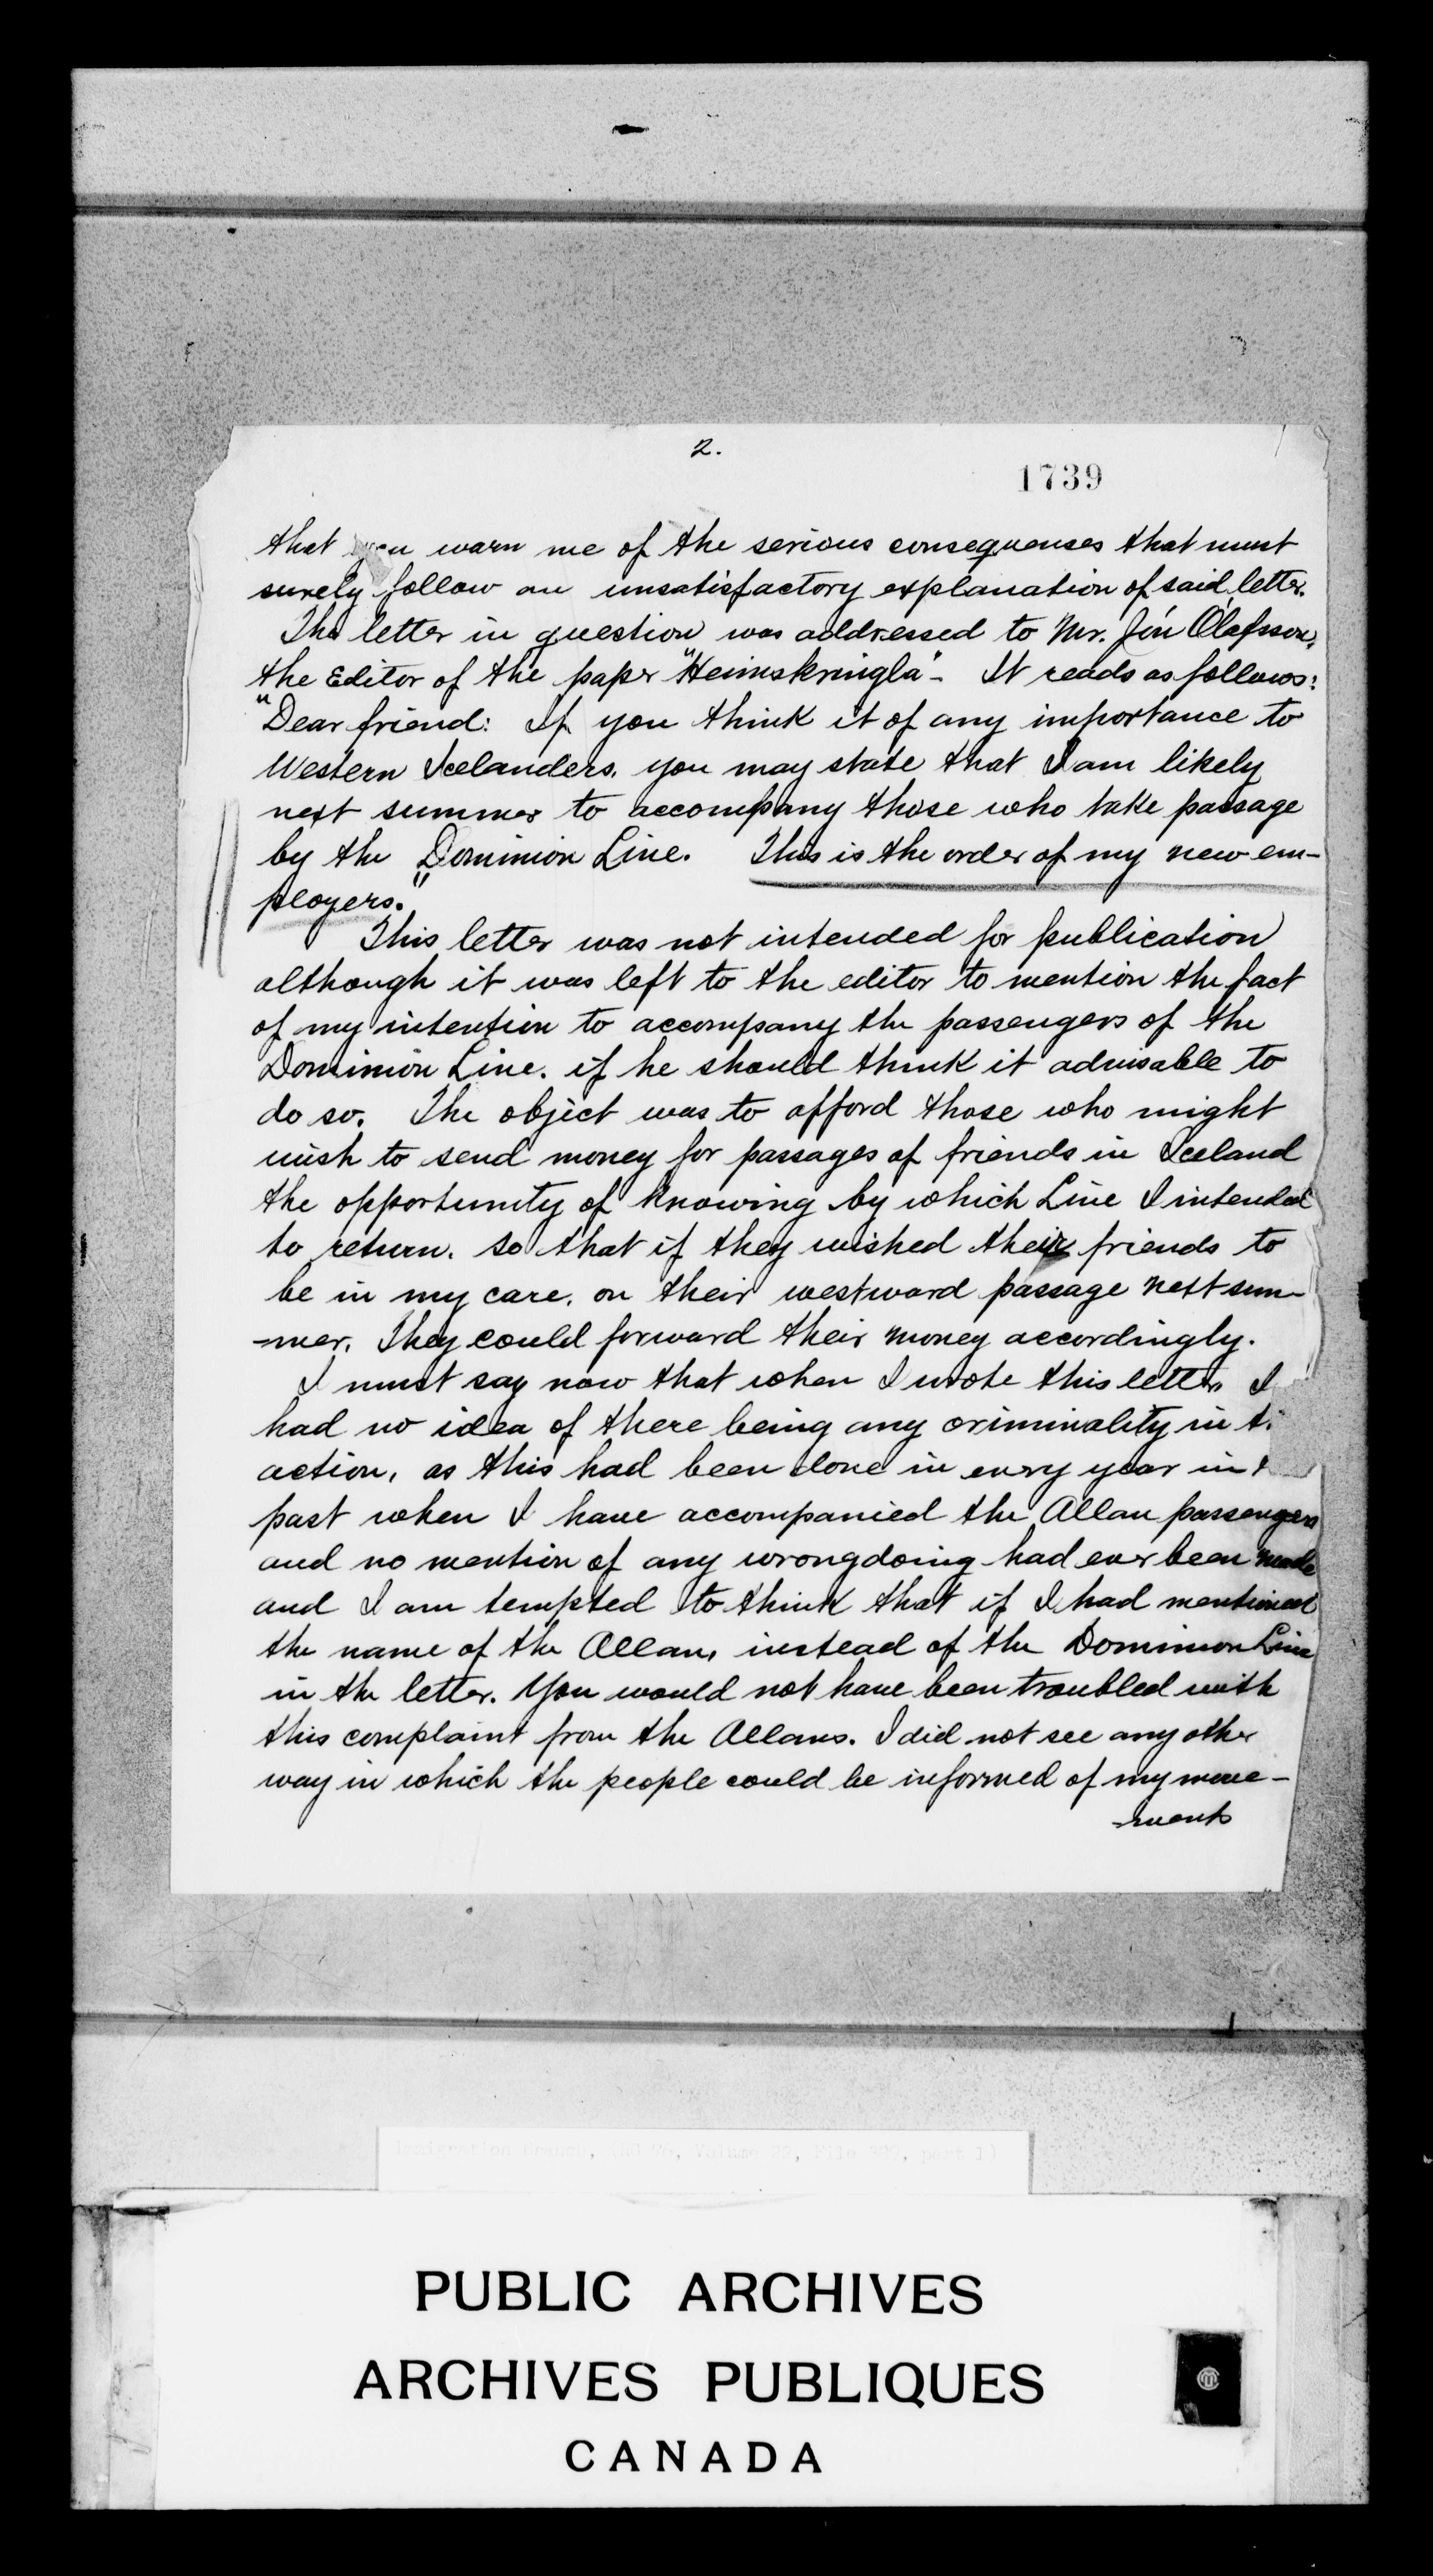 2.
1739
that you warn me of the serious consequenses that must
surely follow an unsatisfactory explanation of said letter.
The letter in question was addressed to Mr. Jón Ólafsson,
the Editor of the paper "Heimskringla". It reads as follows:
"Dear friend: If you think it of any importance to
Western Icelanders, you may state that I am likely
next summer to accompany those who take passage
by the Dominion Line. This is the order of my new em-
ployers."
This letter was not intended for publication
although it was left to the editor to mention the fact
of my intention to accompany the passengers of the
Dominion Line, if he should think it advisable to
do so. The object was to afford those who might
wish to send money for passages of friends in Iceland
the opportunity of knowing by which Line I intended
to return. So that if they wished their friends to
be in my care, on their westward passage next sum-
-mer. They could forward their money accordingly.
I must say now that when I wrote this letter I
had no idea of there being any criminality in
action, as this had been done in every year in
past when I have accompanied the Allan passengers
and no mention of any wrongdoing had ever been made
and I am tempted to think that if I had mentioned
the name of the Allan, instead of the Dominion Line
in the letter. You would not have been troubled with
this complaint from the Allans. I did not see any other
way in which the people could be informed of my move-
-ments
Immigration Branch, (RG 76, Volume 22, File 389, part 1)
PUBLIC ARCHIVES
ARCHIVES PUBLIQUES
CANADA